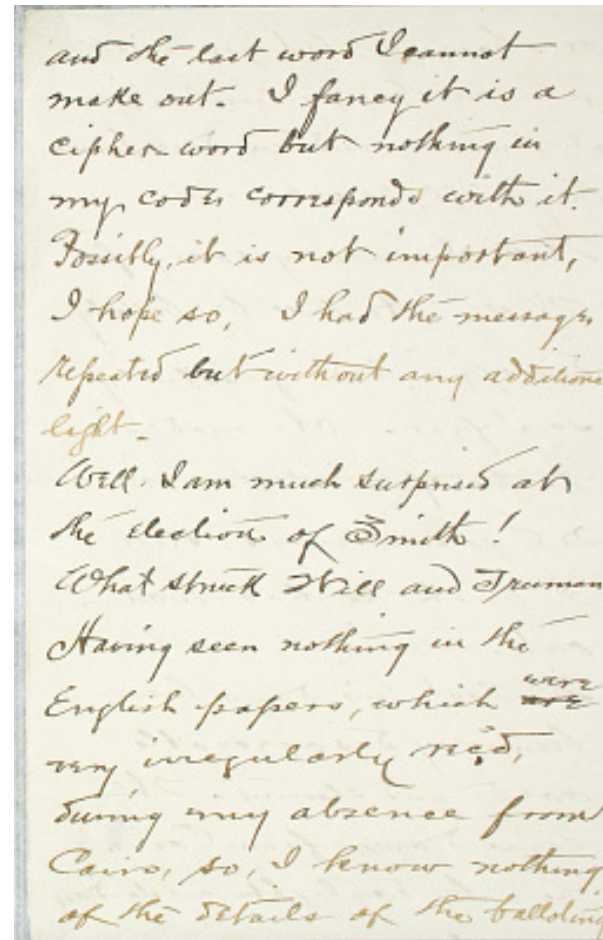 and the last word I cannot
make out. I fancy it is a
cipher word but nothing in
my codes corresponds with it.
Possibly, it is not important,
I hope so, I had the message
repeated but without any additional
light.
Well. I am much surprised at
the election of Smith!
What struck Hill and Truman
Having seen nothing in the
English papers, which were are
very irregularly rec'd,
during my absence from
Cairo, so, I know nothing
of the details of the balloting